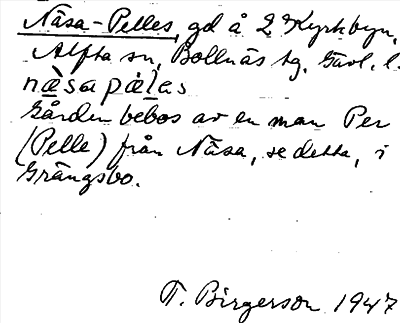 Näsa-Pelles, gd å 2 Kyrkbyn,
Alfta sn, Bollnäs tg. Gävl. l.
næ̀sapæ̀las
Gården bebos av en man Per
(Pelle) från Näsa, se detta, i
Grängsbo.
T. Birgerson 1947